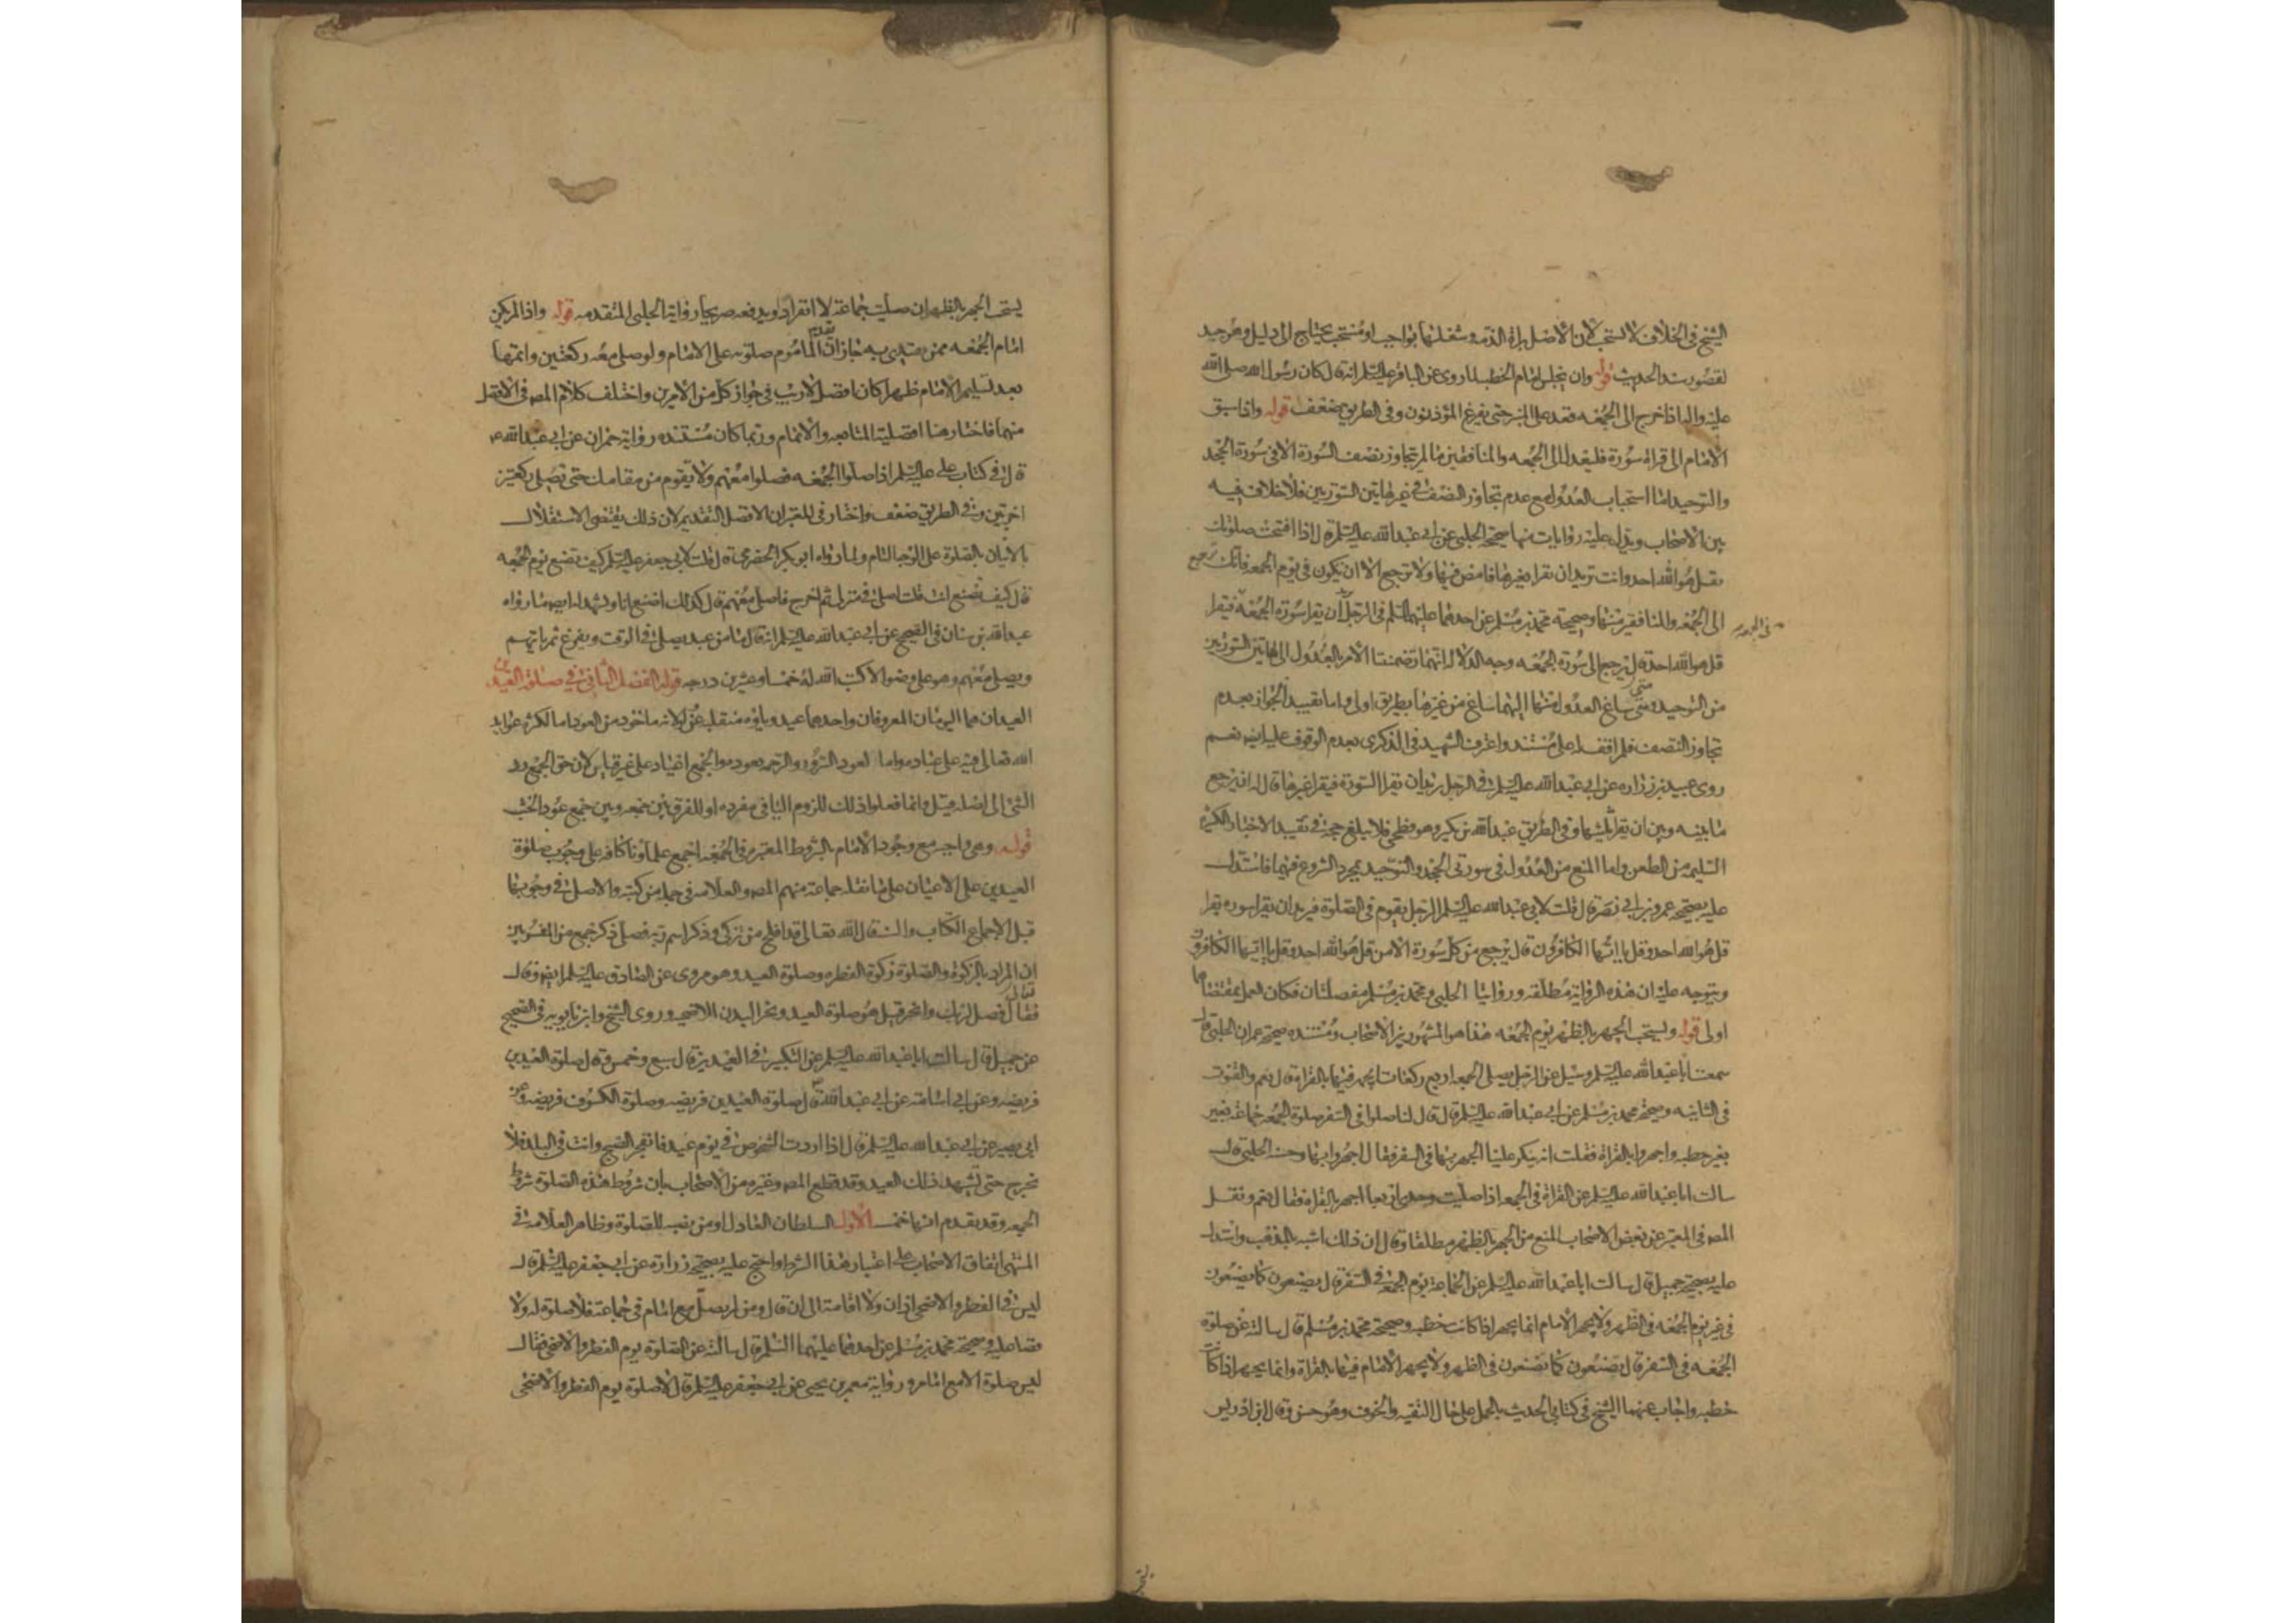 الشيخ في الخلاف لا تستحب لان الاصل براة الذمه وشغلها بواجب او مستحب يحتاج الى دليل وهو جيد
لقصور سند الحديث قوله وان يجلس امام الخطبه لما روى عن الباقر عليه السلم انه قال كان رسول الله صلى الله
عليه واله اذا خرج الى الجمعه قعد على المنبر حتى يفرغ المؤذنون وفي الطريق ضعف قوله واذا سبق
الامام الى قراة سورة فليعدل الى الجمعه والمنافقين ما لم يتجاوز نصف السورة الا في سورة الجحد
والتوحيد اما استحباب العدول مع عدم تجاوز النصف في غير هاتين السورتين فلا خلاف فيه
بين الاصحاب ويدل عليه روايات منها صحيحة الحلبي عن ابي عبد الله عليه السلم قال اذا افتتحت صلوتك
بقل هو الله احد وانت تريد ان تقرا بغيرها فامض فيها ولا ترجع الا ان يكون في يوم الجمعه فانك ترجع
الى الجمعه والمنافقين منها وصحيحة محمد بن مسلم عن احدهما عليهما السلم في الرجل يريد ان يقرا سورة الجمعه في الجمعه فيقرا
قل هو الله احد قال يرجع الى سورة الجمعه وجه الدلالة انهما تضمنتا الامر بالعدول الى هاتين السورتين
من التوحيد ومتى ساغ العدول منها اليهما ساغ من غيرها بطريق اولى واما تقييد الجواز بعدم
تجاوز النصف فلم اقف له على مستند واعترف الشهيد في الذكرى بعدم الوقوف عليه ايضا نعم
روى عبيد بن زرارة عن ابي عبد الله عليه السلم في الرجل يريد ان يقرا السورة فيقرا غيرها قال له ان يرجع
ما بينه وبين ان يقرا ثلثيها وفي الطريق عبد الله بن بكير وهو فطحي فلا يبلغ حجة في تقييد الاخبار الكثيرة
السليمة من الطعن واما المنع من العدول في سورتي الجحد والتوحيد بمجرد الشروع فيهما فاستدل
عليه بصحيحة عمرو بن ابي نصر قال قلت لابي عبد الله عليه السلم الرجل يقوم في الصلوة فيريد ان يقرا سوره يقرا
قل هو الله احد وقل يا ايها الكافرون قال يرجع من كل سورة الا من قل هو الله احد وقل يا ايها الكافرون
ويتوجه عليه ان هذه الرواية مطلقة وروايتا الحلبي ومحمد بن مسلم مفصلتان فكان العمل بمقتضاهما
اولى قوله ويستحب الجهر بالظهر يوم الجمعه هذا هو المشهور بين الاصحاب ومستنده صحيحة عمران الحلبي قال
سمعت ابا عبد الله عليه السلم وسئل عن الرجل يصلي الجمعه اربع ركعات ايجهر فيها بالقراة قال نعم والقنوت
في الثانيه وصحيحة محمد بن مسلم عن ابي عبد الله عليه السلم قال قال لنا صلوا في السفر صلوة الجمعه جماعة بغير
بغير خطبه واجهروا بالقراة فقلت انه ينكر علينا الجهر بها في السفر فقال اجهروا بها وحسنة الحلبي قال
سالت ابا عبد الله عليه السلم عن القراة في الجمعه اذا صليت وحدي اربعا اجهر بالقراة فقال نعم ونقل
المصـ في المعتبر عن بعض الاصحاب المنع من الجهر بالظهر مطلقا وقال ان ذلك اشبه بالمذهب واستدل
عليه بصحيحة جميل قال سالت ابا عبد الله عليه السلم عن الجماعة يوم الجمعة في السفر قال يصنعون كما يصنعون
في غير يوم الجمعه في الظهر ولا يجهر الامام انما يجهر اذا كانت خطبه وصحيحة محمد بن مسلم قال سالته عن صلوة
الجمعه في السفر قال يصنعون كما يصنعون في الظهر ولا يجهر الامام فيها بالقراة وانما يجهر اذا كانت
خطبه واجاب عنهما الشيخ في كتابي الحديث بالحمل على حال التقيه والخوف وهو حسن وقال ابن ادريس
يستحب الجهر بالظهر ان صليت جماعة لا انفرادا ويدفعه صريحا رواية الحلبي المتقدمه قوله واذا لم يكن
امام الجمعه ممن يقتدى به جاز ان تقدم الماموم صلوته على الامام ولو صلى معه ركعتين واتمها
بعد تسليم الامام ظهرا كان افضل لا ريب في جواز كل من الامرين واختلف كلام المصـ في الافضل
منهما فاختار هنا افضلية المتابعه والاتمام وربما كان مستنده رواية حمران عن ابي عبد الله عـ
قال في كتاب علي عليه السلم اذا صلوا الجمعه فصلوا معهم ولا يقوم من مقامك حتى تصلي ركعتين
اخرتين وفي الطريق ضعف واختار في المعتبر ان الافضل التقديم لان ذلك يقتضي الاستقلال
بالاتيان بالصلوة على الوجه التام ولما رواه ابو بكر الحضرمي قال قلت لابي جعفر عليه السلم كيف تصنع يوم الجمعه
قال كيف تصنع انت قلت اصلي في منزلي ثم اخرج فاصلي معهم قال كذلك اصنع انا ويشهد له ايضا ما رواه
عبد الله بن سنان في الصحيح عن ابي عبد الله عليه السلم انه قال ما من عبد يصلي في الوقت ويفرغ ثم ياتيهم
ويصلي معهم وهو على وضو الا كتب الله له خمسا وعشرين درجه قوله الفصل الثاني في صلوة العيدين
العيدان هما اليومان المعروفان واحدهما عيد وياؤه منقلبة عن واو لانه ماخوذ من العود اما لكثرة عوائد
الله تعالى فيه على عباده واما لعود السرور والرحمه بعوده والجمع اعياد على غير قياس لان حق الجمع رد
الشي الى اصله قيل وانما فعلوا ذلك للزوم اليا في مفرده او للفرق بين جمعه وبين جمع عود الخشب
قوله وهي واجبه مع وجود الامام بالشروط المعتبره في الجمعه اجمع علماونا كافة على وجوب صلوة
العيدين على الاعيان على ما نقله جماعة منهم المصـ والعلامه في جملة من كتبه والاصل في وجوبها
قبل الاجماع الكتاب والسنة قال الله تعالى قد افلح من تزكى وذكر اسم ربه فصلى ذكر جمع من المفسرين
ان المراد بالزكوة والصلوة زكوة الفطره وصلوة العيد وهو مروي عن الصادق عليه السلم ايضا وقال
تعالى فصل لربك وانحر قيل هو صلوة العيد ونحر البدن للاضحى وروى الشيخ وابن بابويه في الصحيح
عن جميل قال سالت ابا عبد الله عليه السلم عن التكبير في العيدين قال سبع وخمس وقال صلوة العيدين
فريضه وعن ابي اسامة عن ابي عبد الله عـ قال صلوة العيدين فريضه وصلوة الكسوف فريضه وعن
ابي بصير عن ابي عبد الله عليه السلم قال اذا اردت الشخوص في يوم عيد فانفجر الصبح وانت في البلد فلا
تخرج حتى تشهد ذلك العيد وقد قطع المصـ وغيره من الاصحاب بان شروط هذه الصلوة شروط
الجمعه وقد تقدم انها خمس الاول السلطان العادل او من نصبه للصلوة وظاهر العلامه في
المنتهى اتفاق الاصحاب على اعتبار هذا الشرط واحتج عليه بصحيحة زرارة عن ابي جعفر عليه السلم قال
ليس في الفطر والاضحى اذان ولا اقامة الى ان قال ومن لم يصل مع امام في جماعة فلا صلوة له ولا
قضا عليه وصحيحة محمد بن مسلم عن احدهما عليهما السلم قال سالته عن الصلوة يوم الفطر والاضحى فقال
ليس صلوة الا مع امام ورواية معمر بن يحيى عن ابي جعفر عليه السلم قال لا صلوة يوم الفطر والاضحى